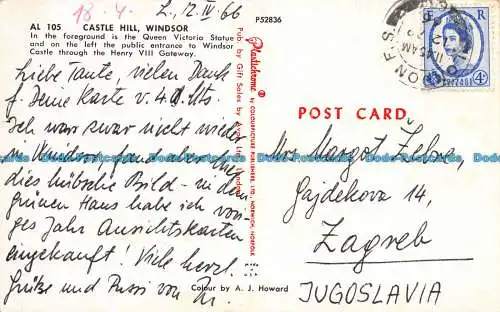 18.4.
L., 12.IV.66
P52836
AL 105 CASTLE HILL, WINDSOR
In the foreground is the Queen Victoria Statue
and on the left the public entrance to Windsor
Castle through the Henry VIII Gateway.
Liebe Tante, vielen Dank
f. Deine Karte v. 4. d. Mts.
Ich war zwar nicht wieder
in Windsor, aber dies
dies hübsche Bild - in dem
grünen Haus habe ich vori-
ges Jahr Ansichtskarten
eingekauft! Viele herzl.
Grüße und Bussi von
Plastichrome ®
by COLOURPICTURE PUBLISHERS, LTD. NORWICH, NORFOLK
Pub. by Gift Sales by Avon, London
Colour by A. J. Howard
POST CARD
Mrs Margot Zelsa,
Gajdekova 14,
Zagreb
JUGOSLAVIA
11.45 AM
12
LONDON F.S.
4D